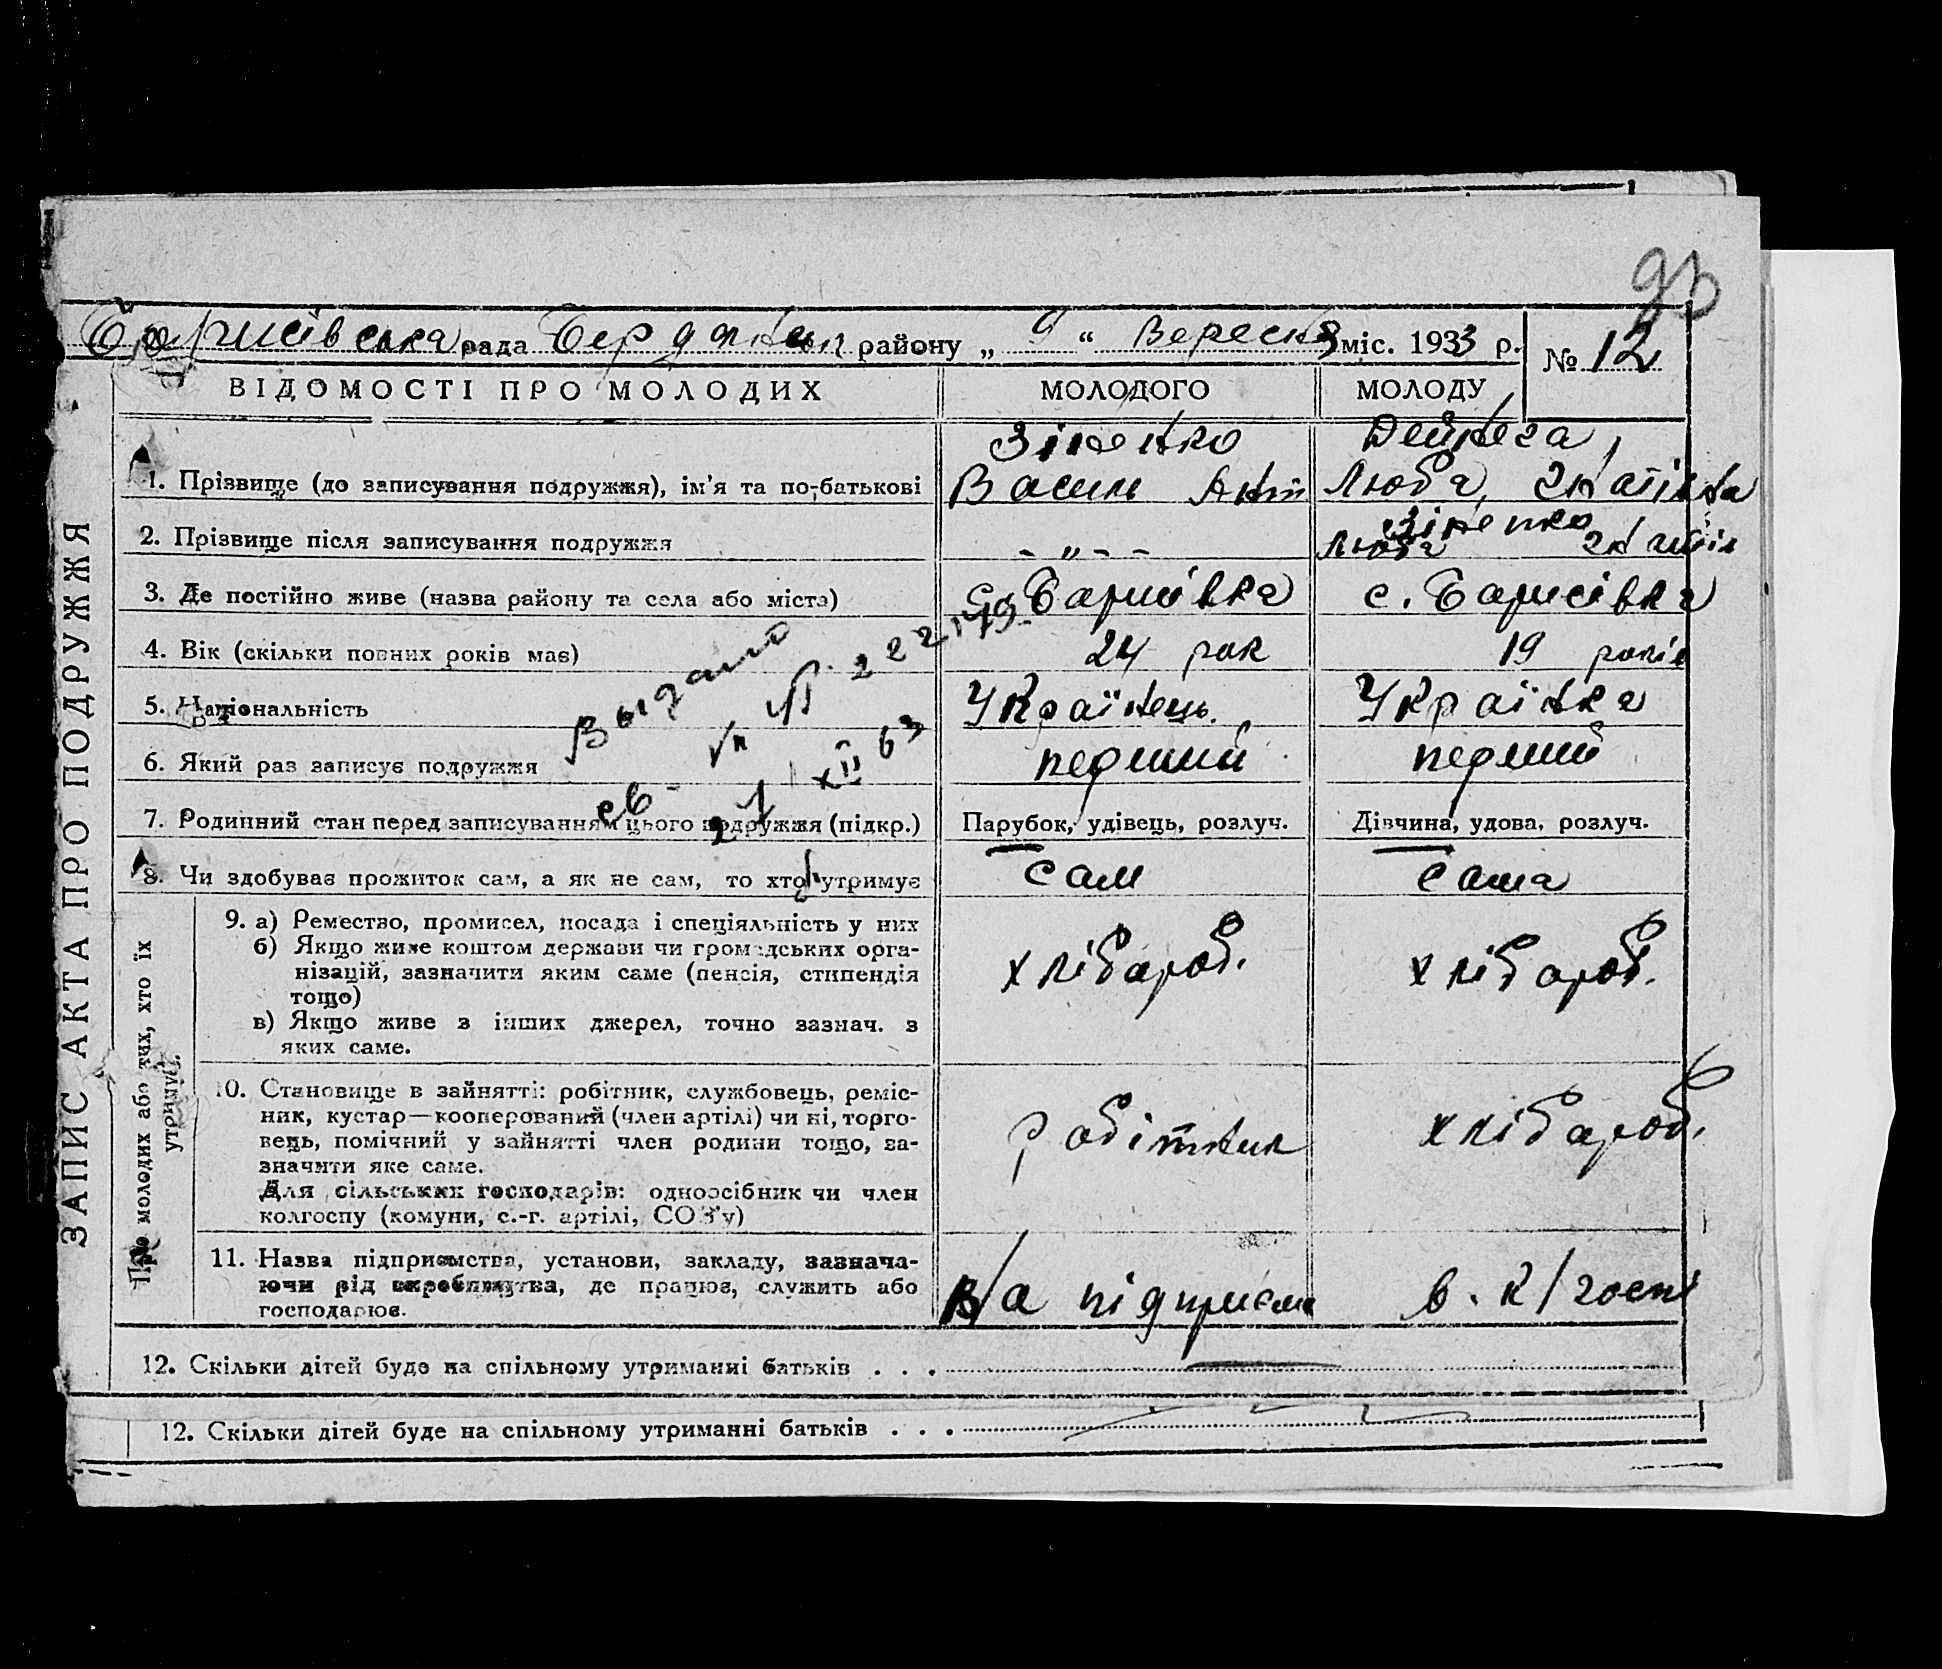 93
Борисівська рада Бердянськ району „ 9 “ Вересня міс. 1933 р. № 12
ВІДОМОСТІ ПРО МОЛОДИХ МОЛОДОГО МОЛОДУ
ЗАПИС АКТА ПРО ПОДРУЖЖЯ
Зіненко Дейнега,
1. Прізвище (до записування подружжя), ім'я та по-батькові Василь Ант Люба, Гнатівна
Зіненко
2. Прізвище після записування подружжя - „ - - Люба Гнатів
3. Де постійно живе (назва району та села або міста) с. Борисівка с. Борисівка
4. Вік (скільки повних років має) 24 рок 19 років
5. Національність Українець. Українка
6. Який раз записує подружжя перший перший
7. Родинний стан перед записуванням цього подружжя (підкр.) Парубок, удівець, розлуч. Дівчина, удова, розлуч.
8. Чи здобуває прожиток сам, а як не сам, то хто утримує сам сама
Выдано
св-
27 XII 63
Про молодих або тих, хто їх
утримує.
9. а) Ремество, промисел, посада і спеціяльність у них
б) Якщо живе коштом держави чи громадських орга-
нізацій, зазначити яким саме (пенсія, стипендія
тощо)
в) Якщо живе з інших джерел, точно зазнач. з
яких саме.
хлібароб. хлібароб.
10. Становище в зайнятті: робітник, службовець, реміс-
ник, кустар—кооперований (член артілі) чи ні, торго-
вець, помічний у зайнятті член родини тощо, за-
значити яке саме.
Для сільських господарів: одноосібник чи член
колгоспу (комуни, с.-г. артілі, СОЗ'у)
робітник хлібароб.
11. Назва підприємства, установи, закладу, зазнача-
ючи рід виробництва, де працює, служить або
господарює.
в/а підприєм в. к/госпі
12. Скільки дітей буде на спільному утриманні батьків . . .
12. Скільки дітей буде на спільному утриманні батьків . . .